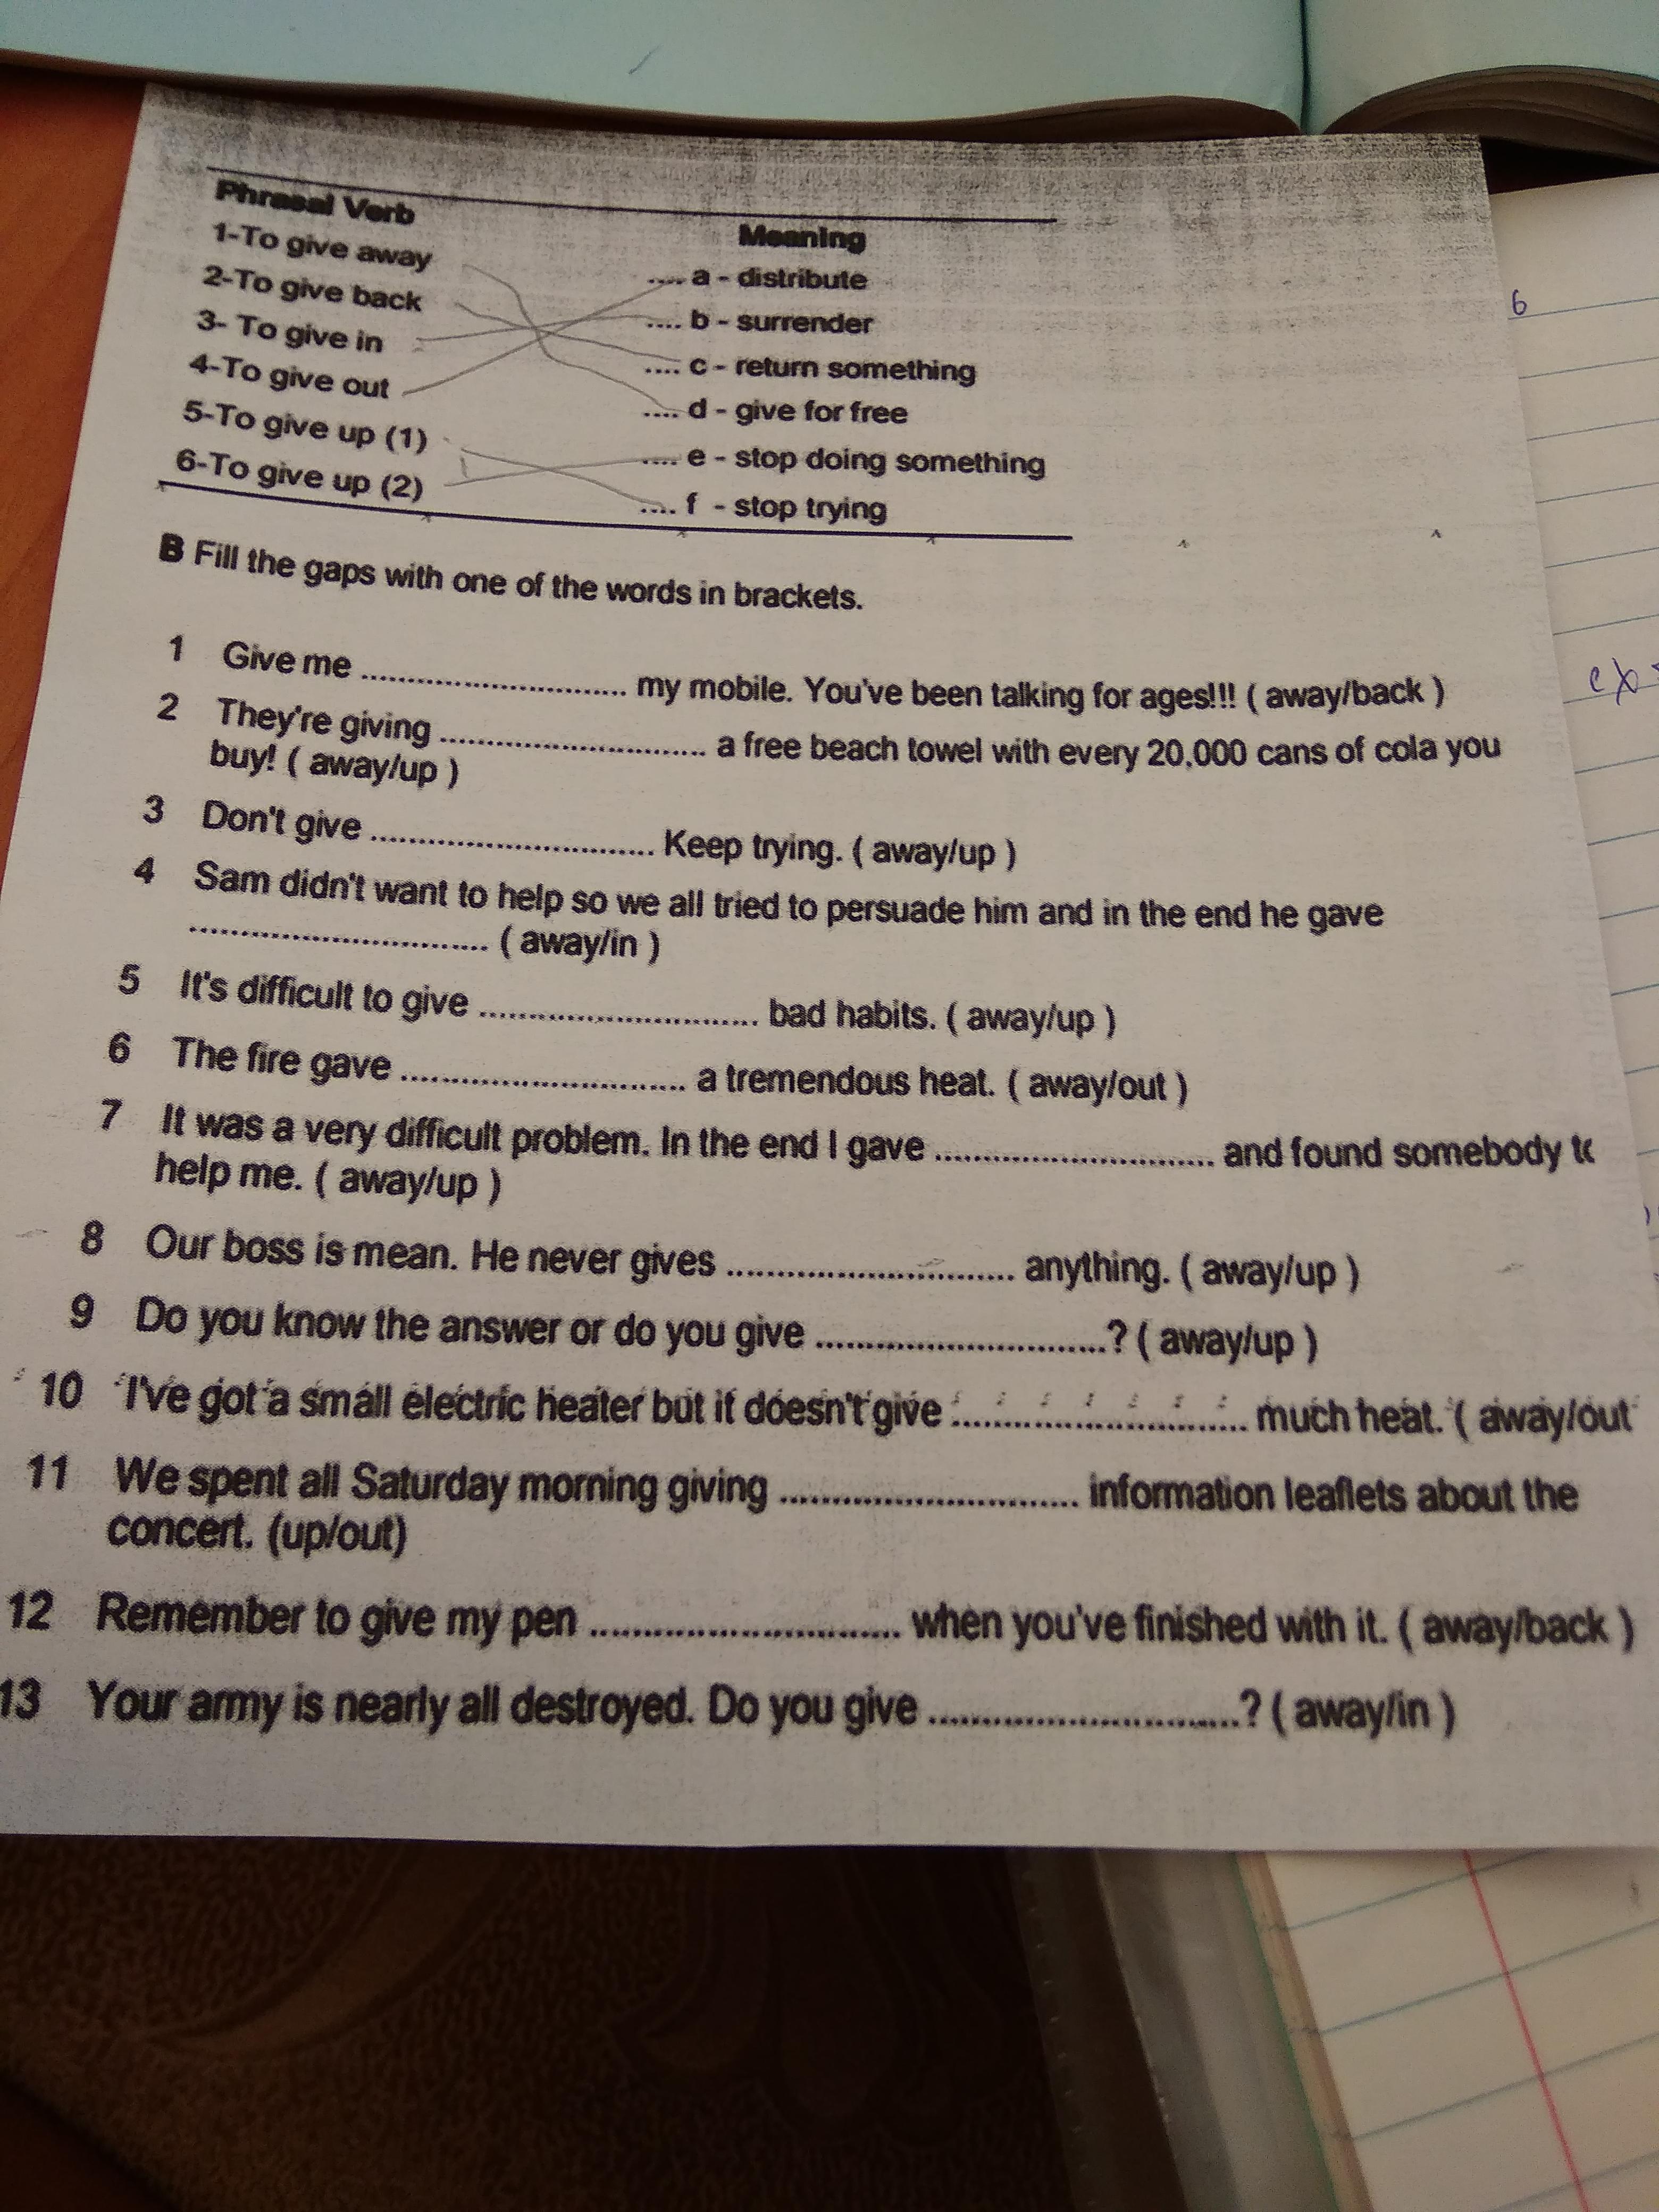 Phrasal Verb Meaning
1-To give away .... a - distribute
2-To give back .... b - surrender
3- To give in .... c - return something
4-To give out .... d - give for free
5-To give up (1) .... e - stop doing something
6-To give up (2) .... f - stop trying
B Fill the gaps with one of the words in brackets.
1 Give me .............................. my mobile. You've been talking for ages!!! ( away/back )
2 They're giving .............................. a free beach towel with every 20,000 cans of cola you
buy! ( away/up )
3 Don't give .............................. Keep trying. ( away/up )
4 Sam didn't want to help so we all tried to persuade him and in the end he gave
.............................. ( away/in )
5 It's difficult to give .............................. bad habits. ( away/up )
6 The fire gave .............................. a tremendous heat. ( away/out )
7 It was a very difficult problem. In the end I gave .............................. and found somebody to
help me. ( away/up )
8 Our boss is mean. He never gives .............................. anything. ( away/up )
9 Do you know the answer or do you give ..............................? ( away/up )
10 I've got a small electric heater but it doesn't give .............................. much heat. ( away/out
11 We spent all Saturday morning giving .............................. information leaflets about the
concert. (up/out)
12 Remember to give my pen .............................. when you've finished with it. ( away/back )
13 Your army is nearly all destroyed. Do you give ..............................? ( away/in )
6